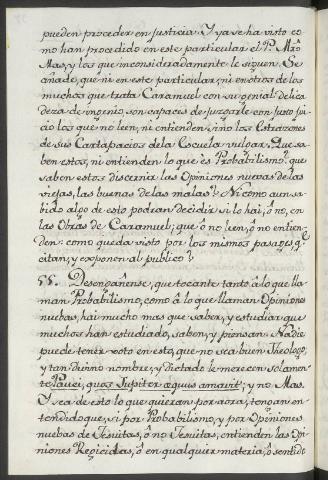 pueden proceder en justicia. Y ya se ha visto co
mo han procedido en este particular el P. Mrō
Mas, y los que inconsideradamente le siguen. Se
añade, que ni en este particular, ni en otros de los
muchos que trata Caramuel con su genial delica
deza de ingenio, son capaces de juzgarle con justo jui
cio los que no leen, ni entienden, sino los
de sus Cartapacios de la Escuela vulgar. Que sa
ben estos, ni entienden lo que es Probabilismo? que
saben estos discernir las Opiniones nuevas de las
viejas, las buenas de las malas? Ni como aun sa
bido algo de esto podran decidir si lo hai, ò no, en
las Obras de Caramuel; que ò no leen, ò no entien
den: como queda visto por los mismos pasages, q̄
citan, y exponen al publico?
55. Desengañense, que tocante tanto à lo que lla
man Probabilismo, como à lo que llaman Opiniones
nuebas, hai mucho mas que saber, y estudiar que
muchos han estudiado, saben, y piensan. Nadie
puede tener voto en esto, que no sea buen Theologo,
y tan divino nombre, y dictado le merecen solamen-
te Pauci, quos Jupiter aequus amavit; y no Mas.
Y sea de esto lo que quieran por aora, tengan en-
tendido que, si por Probabilismo, y por Opiniones
nuebas de Jesuitas, ò no Jesuitas, entienden las Opi
niones Regicidas, ò en qualquier materia, ò sentido